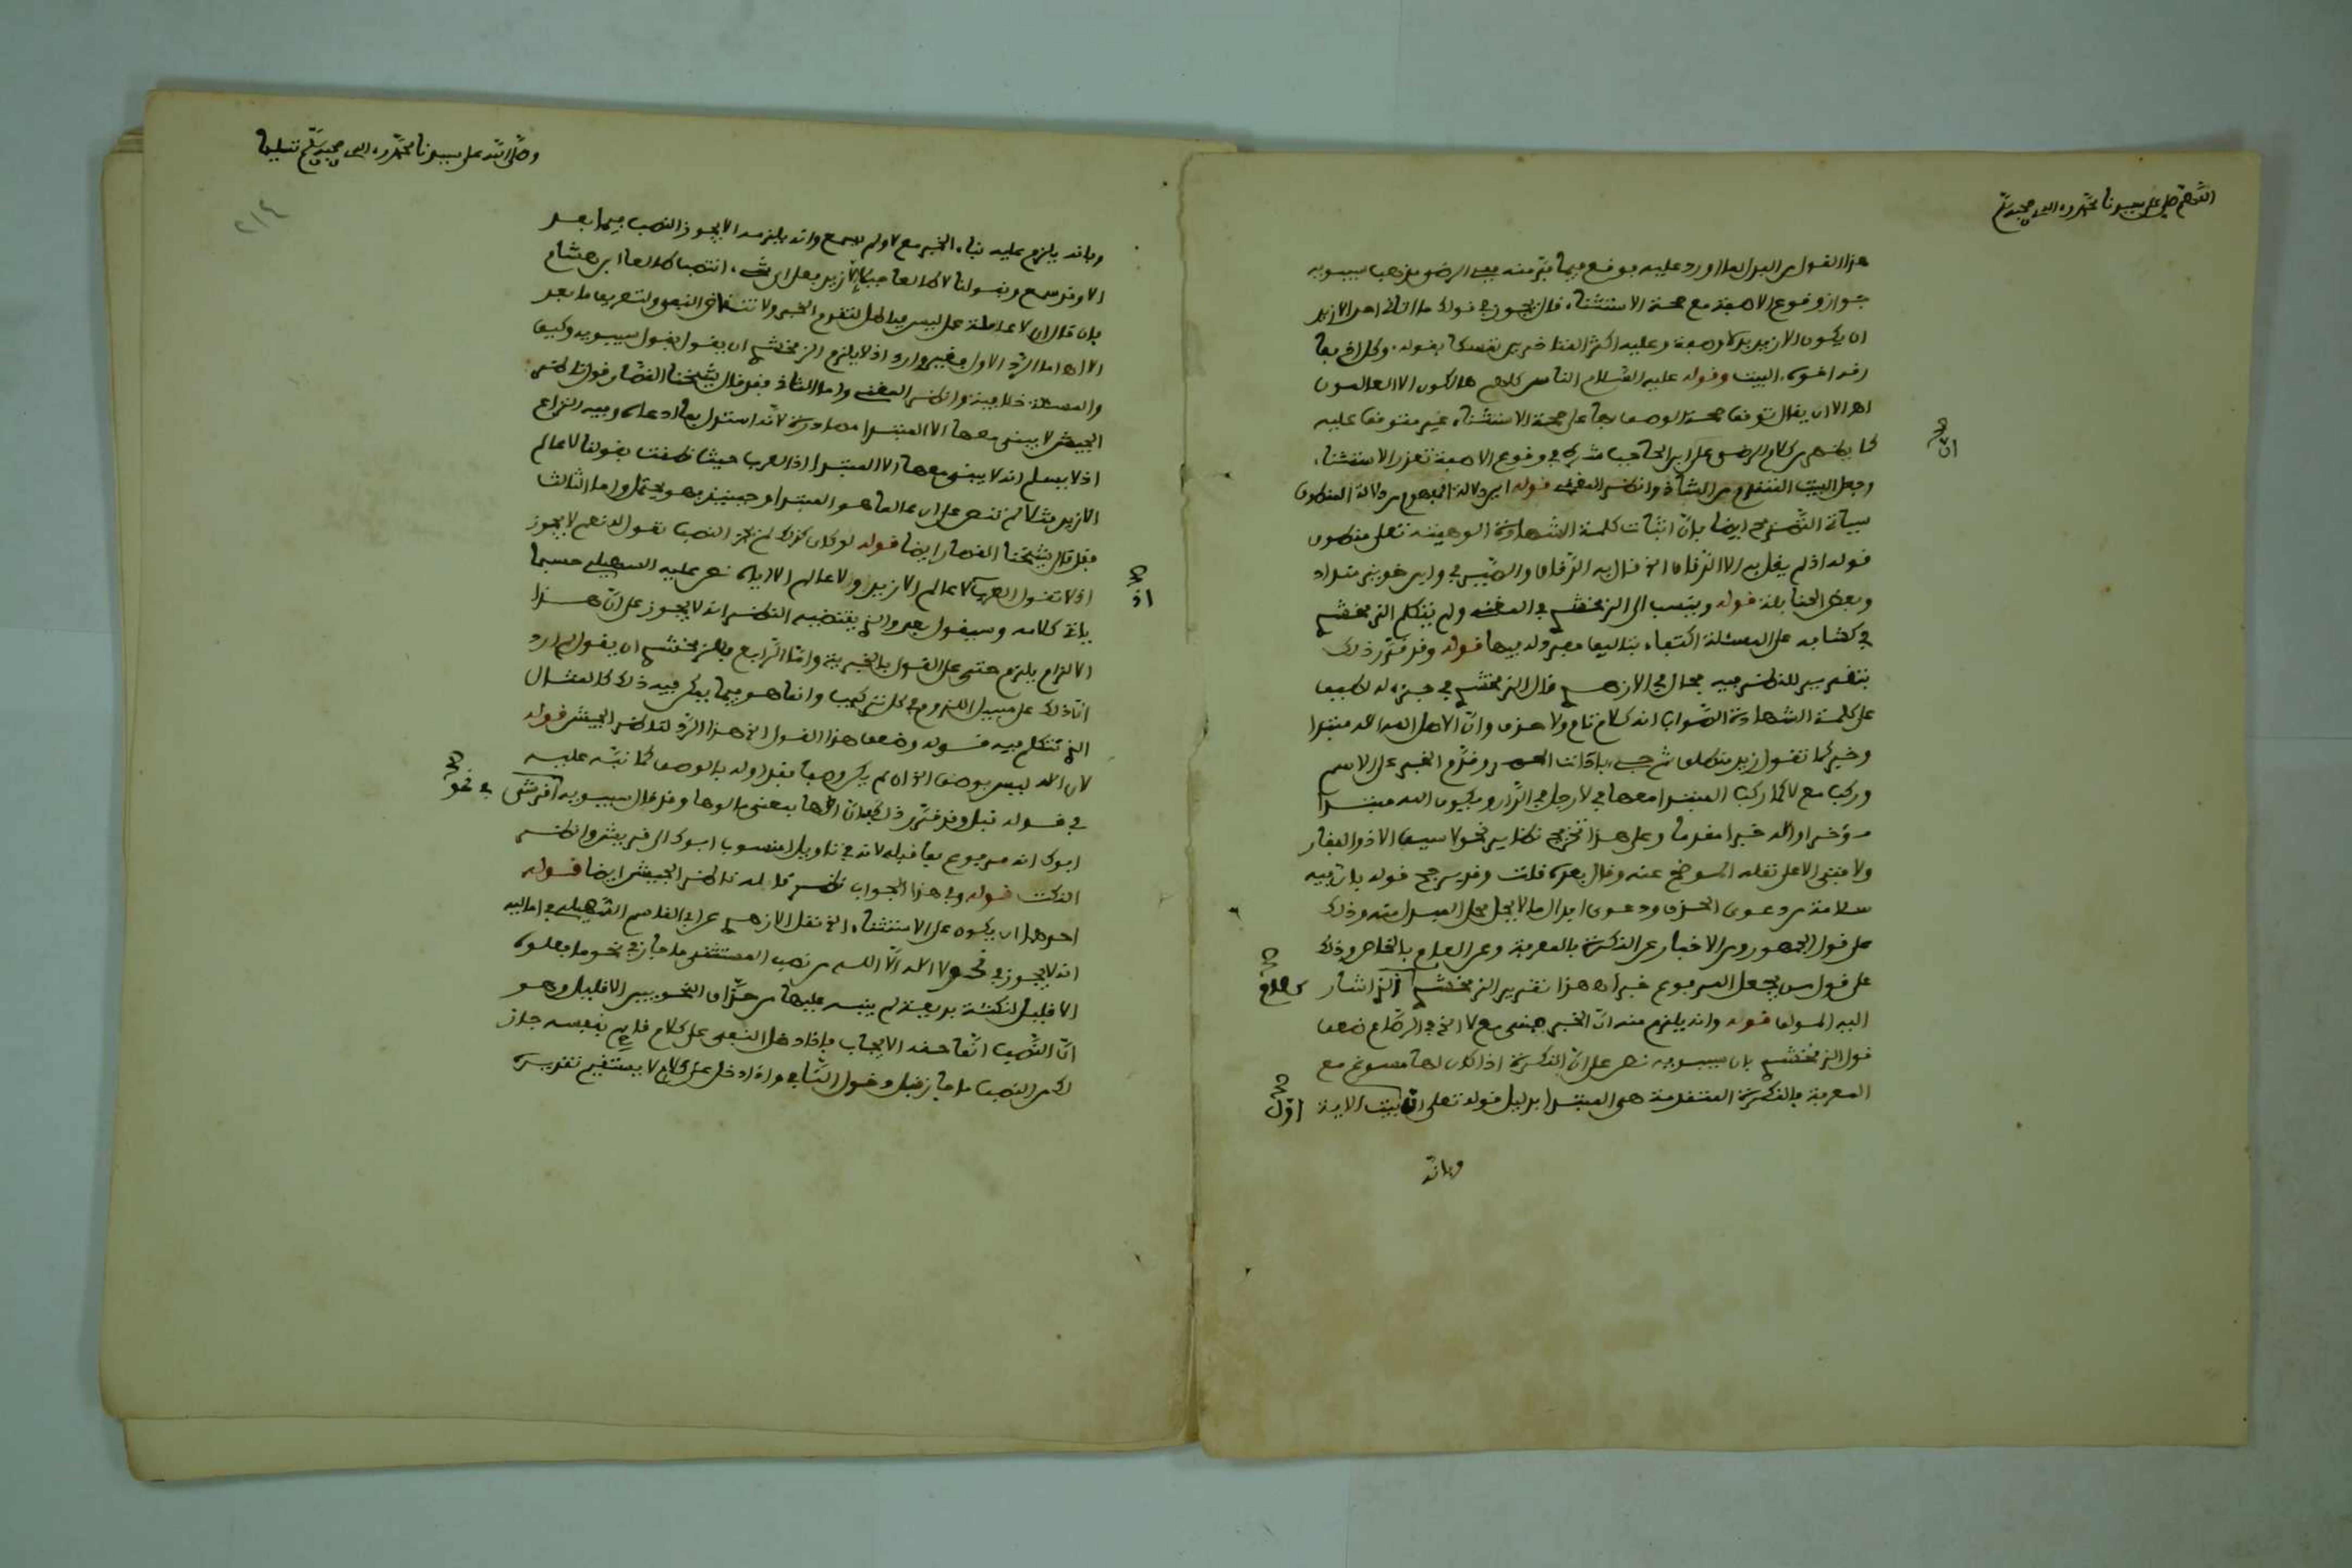 اللهم صل على سيدنا محمد وءاله وصحبه وسلم
هذا القول من البدل لما اورد عليه
جواز وقوع الا صفة مع صحة الاستثناء قال يجوز في قولك ما اتاني احد الا زيد
ان يكون الا زيد بدلا وصفة وعليه اكثر المتاخرين تمسكا بقوله وكل اخ مفا
رقه اخوه البيت وقوله عليه السلام الناس كلهم هالكون الا العالمون
اهـ الا ان يقال توقف صحة الوصف بها على صحة الاستثناء غير متوقف عليه
كما يظهر من كلام الرضي على ان ابن الحاجب شرط في وقوع الا صفة تعذر الاستثناء
وجعل البيت المتقدم من الشاذ وانظر المغني قوله
ايضا بان اثبات كلمة الشهادة الوهيته تعلى
قوله اذ لم يقل به الا الزقاق الخ قال به الزقاق
وبعض الحنابلة قوله وينسب الى الزمخشري في المغني ولم يتكلم الزمخشري
في كشافه على المسئلة اكتفاء بتاليف مفرد له فيها قوله وقد قرر ذلك
بتقرير للنظر فيه مجال في الازهري قال الزمخشري في جزء له لطيف
على كلمة الشهادة الصواب انه كلام تام ولا حذف وان الاصل الله اله مبتدا
وخبر كما تقول زيد منطلق ثم جيء باداة الحصر وقدم الخبر على الاسم
وركب مع لا كما ركب المبتدا معها في لا رجل في الدار ويكون الله مبتدا
مؤخرا واله خبرا مقدما وعلى هذا تخريج نظايره نحو لا سيف الا ذو الفقار
ولا فتى الا على نقله الموضح عنه وقال بعده قلت وقد يرجح قوله بان فيه
سلامة من دعوى الحذف ودعوى ابدال ما لا يحل محل المبدل منه وذلك
على قول الجمهور ومن الاخبار عن النكرة بالمعرفة وعن العام بالخاص وذلك
على قول من يجعل المرفوع خبرا اهـ هذا تقرير الزمخشري الذي اشار
اليه المؤلف قوله وانه يلزم منه ان الخبر يبنى مع لا الخ في الدماميني ضعف
قول الزمخشري بان سيبويه نص على ان النكرة اذا كان لها مسوغ مع
المعرفة فالنكرة المتقدمة هي المبتدا بدليل قوله تعلى ان اول بيت الاية
وبانه
وصلى الله على سيدنا محمد وءاله وصحبه وسلم تسليما
٢١٤
وبانه يلزم عليه بناء الخبر مع لا ولم يسمع وانه يلزمه الا يجوز النصب فيما بعد
الا وقد سمع في قولنا لا اله
بان قال ان لا عاملة عمل ليس فباطل لتقدم الخبر ولانتقاض النفي ولتعريف ما بعد
الا اهـ اما الرد الاول فغير وارد اذ لا يلزم الزمخشري ان يقول بقول سيبويه وكيف
والمسئلة خلافية وانظر المغني واما الثاني فقد قال شيخنا القصار قول ناظر
الجيش لا يبنى معها الا المبتدا مصادرة لانه استدل بما ادعاه وفيه النزاع
اذ لا يسلم انه لا يبنى معها الا المبتدا اذ العرب حيث نطقت بقولنا لا عالم
الا زيد مثلا لم تنص على ان عالما هو المبتدا وحينئذ فهو محتمل واما الثالث
فقد قال شيخنا القصار ايضا قوله لو كان كذلك لم يجز النصب نقول له نعم لا يجوز
اذ لا تقول العرب لا عالم الا زيدا ولا عالم الا اياه نص عليه السهيلي حسبما
ياتي كلامه وسيقول هو والذي يقتضيه النظر انه لا يجوز على ان هذا
الالزام يلزم حتى على القول بالخبرية واما الرابع فللزمخشري ان يقول لم ارد
ان ذلك على سبيل اللزوم في كل تركيب وانما هو فيما يمكن فيه ذلك كالمثال
الذي تتكلم فيه قوله وضعف هذا القول الخ هذا الرد لناظر الجيش قوله
لان اله ليس بوصف الخ اه لم يكن وصفا فقد اول بالوصف كما نبه عليه
في قوله قبل وقد قرر ذلك بان الها بمعنى مالوها وقد قال سيبويه في نحو اقرشي
ابوك انه مرفوع بما قبله لانه في تاويل امنسوب ابوك الى قريش وانظر
النكت قوله وفي هذا الجواب نظر قاله ناظر الجيش ايضا قوله
احدهما ان يكون على الاستثناء الخ نقل الازهري عن ابي القاسم السهيلي في اماليه
انه لا يجوز في نحو لا اله الا الله من نصب المستثنى ما جاز في نحو ما فعلوه
الا قليل لنكتة بديعة لم ينبه عليها من حذاق النحويين الا قليل وهو
ان النصب انما حقه الايجاب فاذا دخل النفي على كلام قايم بنفسه جاز
لك من النصب ما جاز قبل دخول النافي واذا دخل على كلام لا يستقيم تقديره